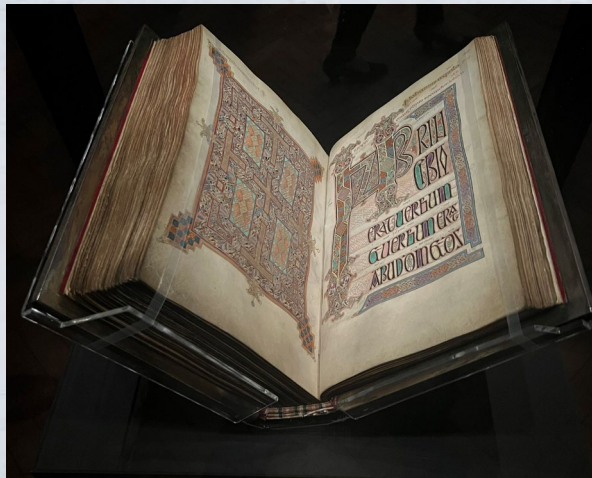 INPRIN
CIPIO
ERATUERBUM
ETUERBUMERAT
APUDDMETDS